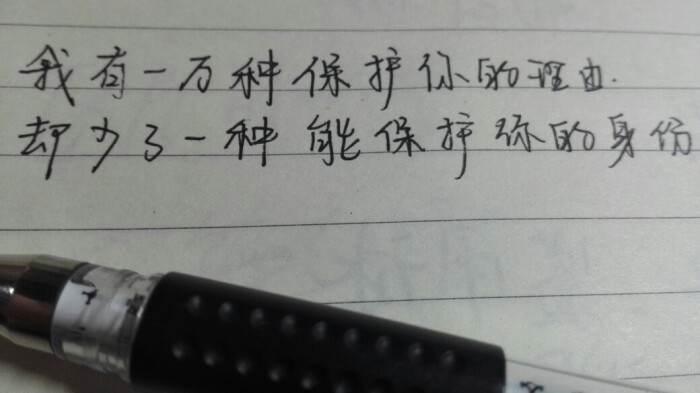 我有一万种保护你的理由.
却少了一种能保护你的身份